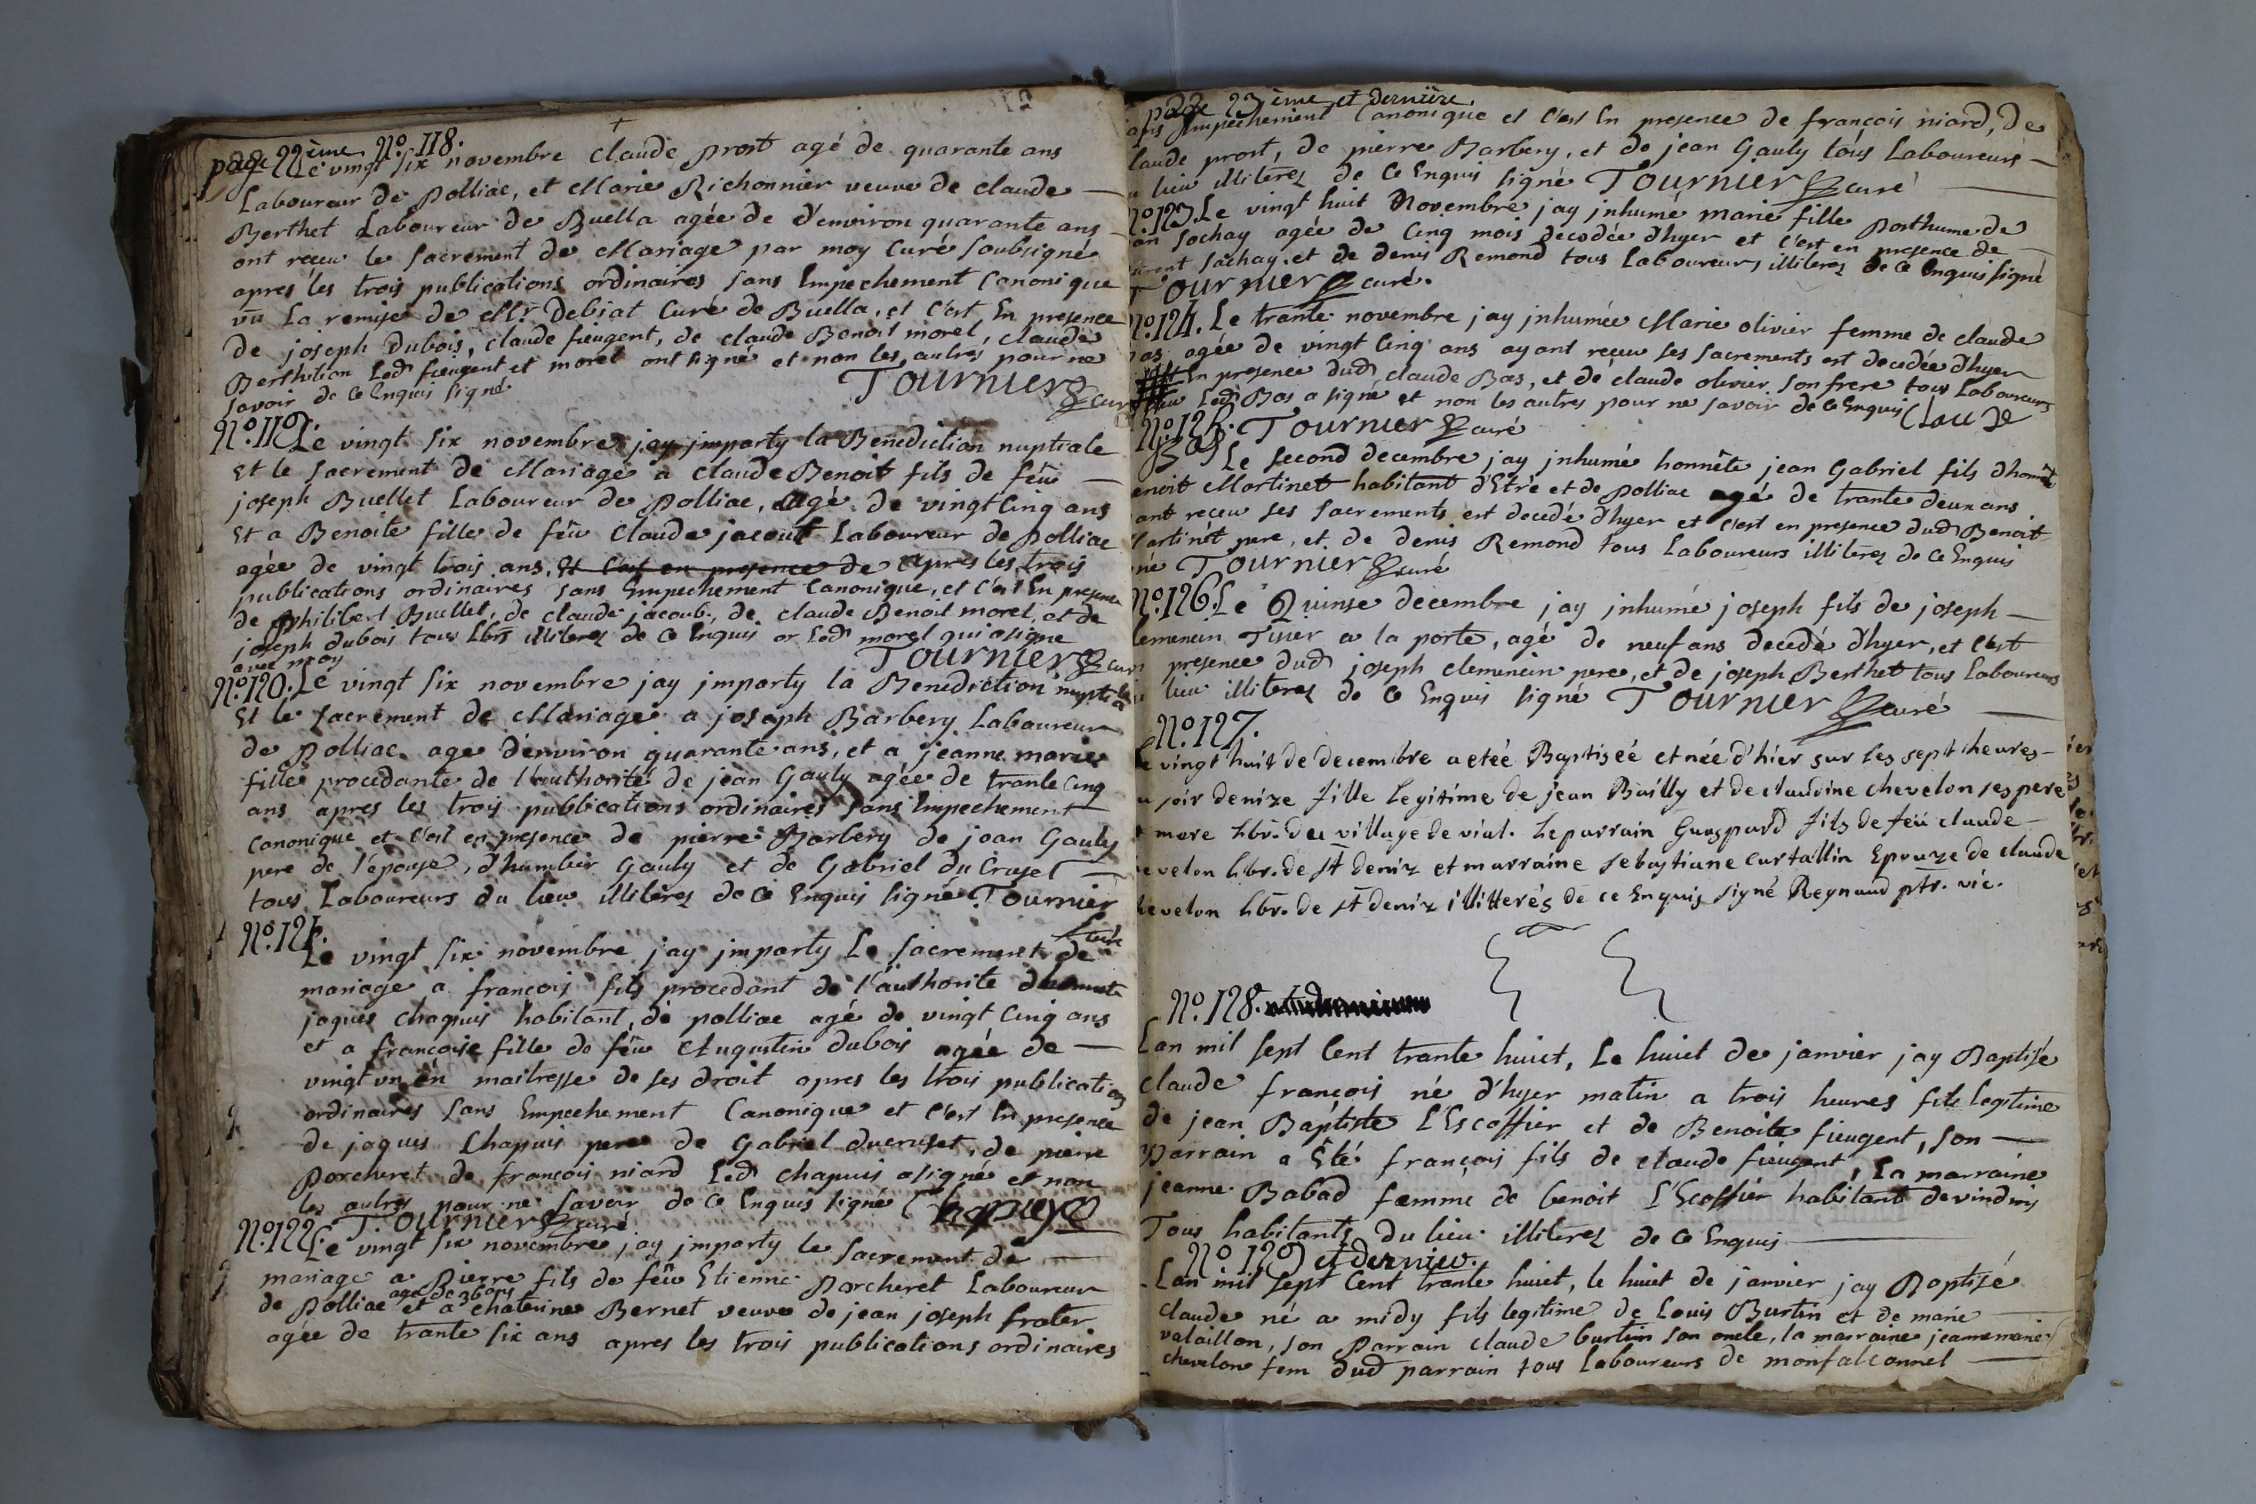 page 22ème N.º 118.
Le vingt six novembre Claude prost agé de quarante ans
Laboureur de Polliac, et Marie Richonnier veuve de Claude
Berthet Laboureur de Buella agée de d'environ quarante ans
ont reçeu le Sacrement de Mariage par moy Curé Soubsigné
apres les trois publications ordinaires sans Empechement Canonique
vû La remise de Mr. Debiat Curé de Buella, et c'est En presence
de joseph Dubois, claude fieugent, de claude Benoit morel, Claude
Berthilion Led. fieugent et morel ont signé et non les autres pour ne
savoir de Ce Enquis signé
Tournier curé
N.º 119. Le vingt six novembre jay imparty la Benediction nuptiale
Et le Sacrement de Mariage a Claude Benoit fils de feû
joseph Buellet Laboureur de Polliac, agé de vingt Cinq ans
Et a Benoite fille de feû Claude jacout Laboureur de Polliac
agée de vingt trois ans, Et C'est en presence de apres les trois
publications ordinaires sans Empechement Canonique, et c'est En presence
de philibert Buellet, de claude jacoub, de claude Benoit morel, et de
joseph dubois tous Lbrs illiterez de Ce Enquis or Led. morel qui a signé
avec moy
Tournier curé
N.º 120. Le vingt six novembre jay imparty la Benediction nuptiale
Et le Sacrement de Mariage a joseph Barbery Laboureur
de Polliac agé d'environ quarante ans, et a jeanne marie
fille procedante de l'authorité de jean Gauly agée de trante Cinq
ans apres les trois publications ordinaires sans Empechement
Canonique et C'est en presence de pierre Barbery de jean Gauly
pere de l'épouse, d'humber Gauly et de Gabriel du Cruset
tous Laboureurs du lieu illiterez de Ce Enquis signé Tournier
curé
N.º 121.
Le vingt six novembre jay imparty Le Sacrement de
mariage a françois fils procedant de l'authorité
jaques chapuis habitant de polliac agé de vingt Cinq ans
et a francoise fille de feû Augustin dubois agée de
vingt un en maitresse de ses droit apres les trois publications
ordinaires sans Empechement Canonique et C'est En presence
de jaques Chapuis pere de Gabriel ducruset, de pierre
Porcheret de françois niard Led. Chapuis a signé et non
les autres pour ne savoir de Ce Enquis signé Chapuis
Tournier curé
N.º 122. Le vingt six novembre jay imparty le Sacrement de
mariage a Pierre fils de feû Etienne Porcheret Laboureur
de Polliac agé de 36 ans et a chaterine Bernet veuve de jean joseph frater
agée de trante six ans apres les trois publications ordinaires
page 23ème et dernière.
sans Empechement Canonique et C'est En presence de françois niard, de
laude prost, de pierre Barbery, et de jean Gauly tous Laboureurs
lieu illiterez de Ce Enquis signé Tournier curé
N.º 123. Le vingt huit Novembre jay inhumé marie fille Posthume de
an Sochay agée de Cinq mois decedée d'hyer et C'est en presence de
Sachay, et de denis Remond tous Laboureurs illiterez de Ce Enquis signé
Tournier curé.
N.º 124. Le trante novembre jay inhumée Marie olivier femme de claude
as agée de vingt Cinq ans ayant reçeu ses Sacrements est decedée d'hyer
En presence dud. claude Bas, et de claude olivier son frere tous Laboureurs
Led. Bas a signé et non les autres pour ne savoir de Ce Enquis Claude
N.º 125. Tournier curé
Bas Le second decembre jay inhumé honnête jean Gabriel fils d'honnête
enoit Martinet habitant d'Etré et de Polliac agé de trante deux ans
ant reçeu ses Sacrements est decedé d'hyer et C'est en presence dud. Benoit
artinét pere, et de denis Remond tous Laboureurs illiterez de Ce Enquis
né Tournier curé
N.º 126. Le Quinse decembre jay inhumé joseph fils de joseph
lemencin Tisier a la porte, agé de neuf ans decedé d'hyer, et C'est
presence dud. joseph clemencin pere, et de joseph Berthet tous Laboureurs
lieu illiterez de Ce Enquis signé Tournier curé
N.º 127.
Le vingt huit de decembre a eteé Baptiseé et née d'hier sur les sept heures
soir denize fille legitime de jean Bailly et de claudine chevelon ses pere
mere lbr. du village de vial. le parrain Gaspard fils de feû claude
evelon lbr. de st deniz et marraine sebastiane Curtallin Epouze de claude
hevelon lbr. de st deniz illitterés de ce Enquis signé Reynaud ptr. vic.
N.º 128.
Lan mil sept Cent trante huict, Le huict de janvier jay Baptisé
claude françois né d'hyer matin a trois heures fils legitime
de jean Baptiste L'Escoffier et de Benoite fieugent, son
Parrain a Eté françois fils de claude fieugent, La marraine
jeanne Babad fæmme de benoit l'Escoffier habitant de vindris
Tous habitants du lieu illiterez de Ce Enquis
N.º 129 et dernier.
Lan mil sept Cent trante huict, le huict de janvier jay Baptisé
claude né a midy fils legitime de Louis Burtin et de marie
valaillon, son Parrain claude burtin son oncle, la marraine jeanne marie
chevelon fem dud parrain tous Laboureurs de monfalconnel